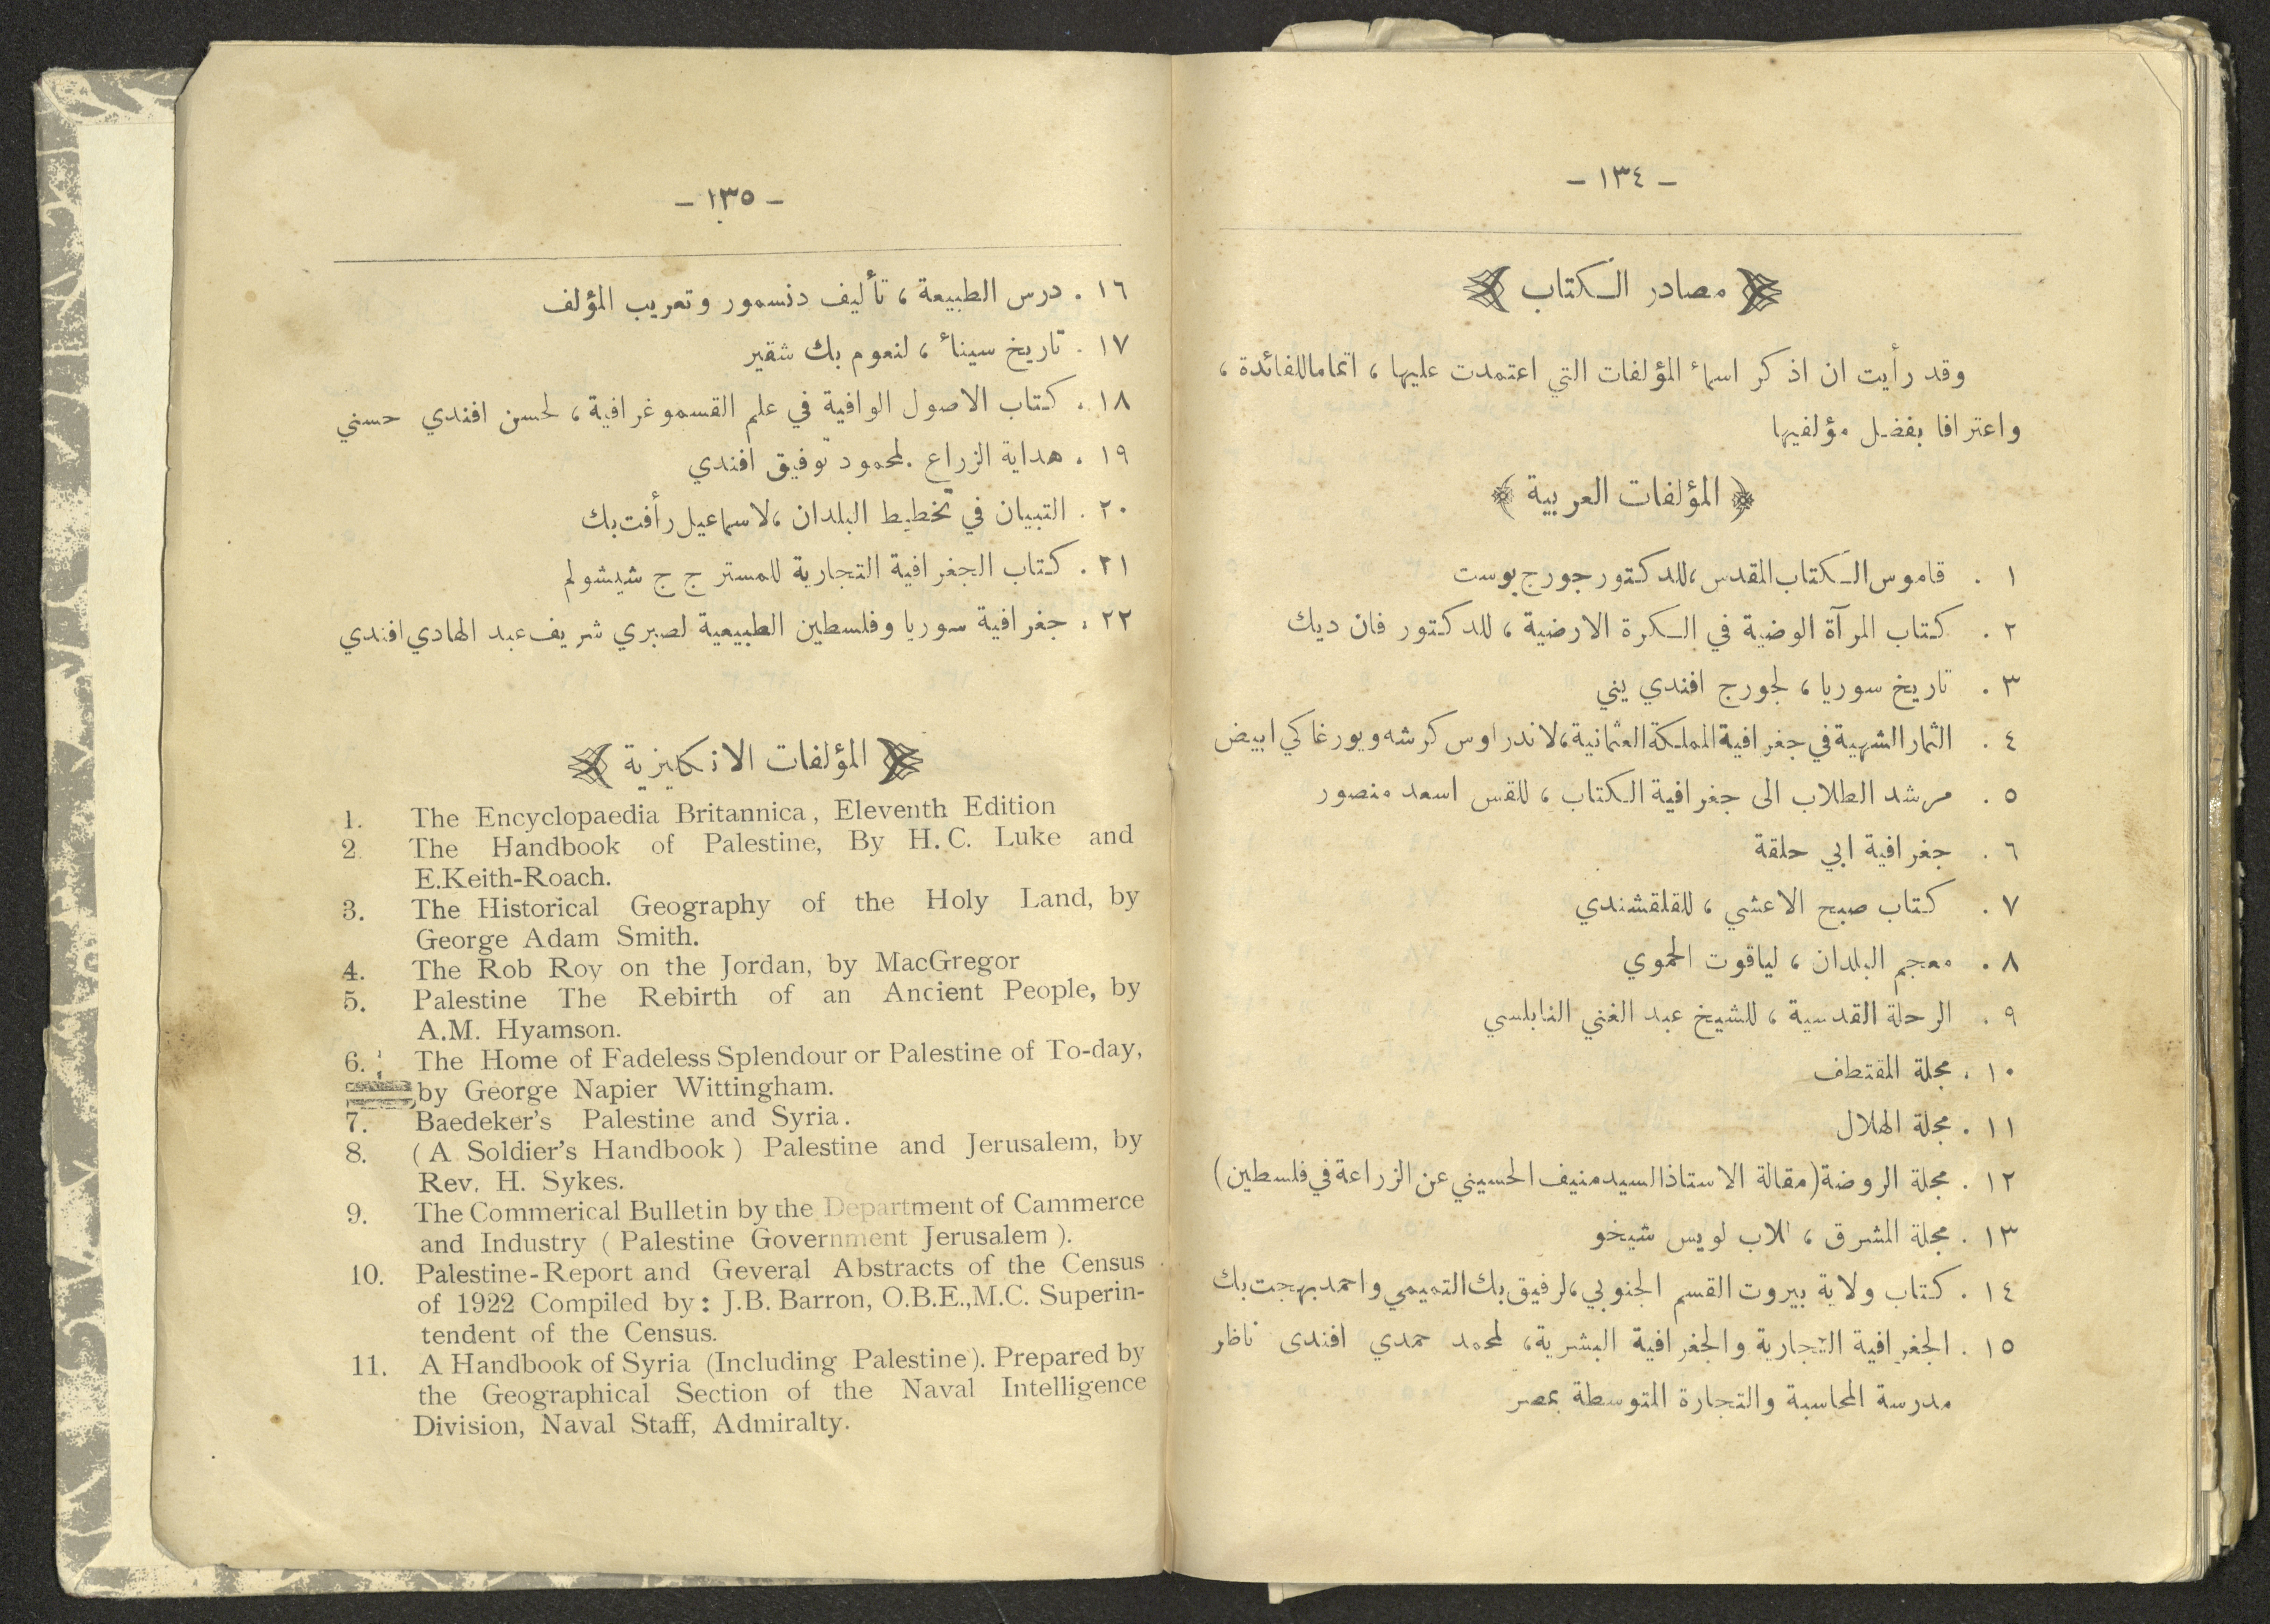 - ١٣٤ -
مصادر الكتاب
وقد رأيت ان اذكر اسماء المؤلفات التي اعتمدت عليها ، اتماما للفائدة ،
واعترافا بفضل مؤلفيها
المؤلفات العربية
١ . قاموس الكتاب المقدس ، للدكتور جورج بوست
٢ . كتاب المرآة الوضية في الكرة الارضية ، للدكتور فان ديك
٣ . تاريخ سوريا ، لجورج افندي يني
٤ . الثمار الشهية في جغرافية المملكة العثمانية ، لاندراوس كرشه ويورغاكي ابيض
٥ . مرشد الطلاب الى جغرافية الكتاب ، للقس اسعد منصور
٦ . جغرافية ابي حلقة
٧ . كتاب صبح الاعشي ، للقلقشندي
٨ . معجم البلدان ، لياقوت الحموي
٩ . الرحلة القدسية ، للشيخ عبد الغني النابلسي
١٠ . مجلة المقتطف
١١ . مجلة الهلال
١٢ . مجلة الروضة (مقالة الاستاذ السيد منيف الحسيني عن الزراعة في فلسطين)
١٣ . مجلة المشرق ، للاب لويس شيخو
١٤ . كتاب ولاية بيروت القسم الجنوبي ، لرفيق بك التميمي واحمد بهجت بك
١٥ . الجغرافية التجارية والجغرافية البشرية ، لمحمد حمدي افندى ناظر
مدرسة المحاسبة والتجارة المتوسطة بمصر
- ١٣٥ -
١٦ . درس الطبيعة ، تأليف دنسمور وتعريب المؤلف
١٧ . تاريخ سيناء ، لنعوم بك شقير
١٨ . كتاب الاصول الوافية في علم القسموغرافية ، لحسن افندي حسني
١٩ . هداية الزراع . لمحمود توفيق افندي
٢٠ . التبيان في تخطيط البلدان ، لاسماعيل رأفت بك
٢١ . كتاب الجغرافية التجارية للمستر ج ج شيشولم
٢٢ . جغرافية سوريا وفلسطين الطبيعية لصبري شريف عبد الهادي افندي
المؤلفات الانكليزية
1. The Encyclopaedia Britannica, Eleventh Edition
2 The Handbook of Palestine, By H.C. Luke and
E.Keith-Roach.
3. The Historical Geography of the Holy Land, by
George Adam Smith.
4. The Rob Roy on the Jordan, by MacGregor
5. Palestine The Rebirth of an Ancient People, by
A.M. Hyamson.
6. The Home of Fadeless Splendour or Palestine of To-day,
by George Napier Wittingham.
7. Baedeker's Palestine and Syria.
8. (A Soldier's Handbook) Palestine and Jerusalem, by
Rev. H. Sykes.
9. The Commerical Bulletin by the Department of Cammerce
and Industry (Palestine Government Jerusalem).
10. Palestine-Report and Geveral Abstracts of the Census
of 1922 Compiled by: J.B. Barron, O.B.E.,M.C. Superin-
tendent of the Census.
11. A Handbook of Syria (Including Palestine). Prepared by
the Geographical Section of the Naval Intelligence
Division, Naval Staff, Admiralty.